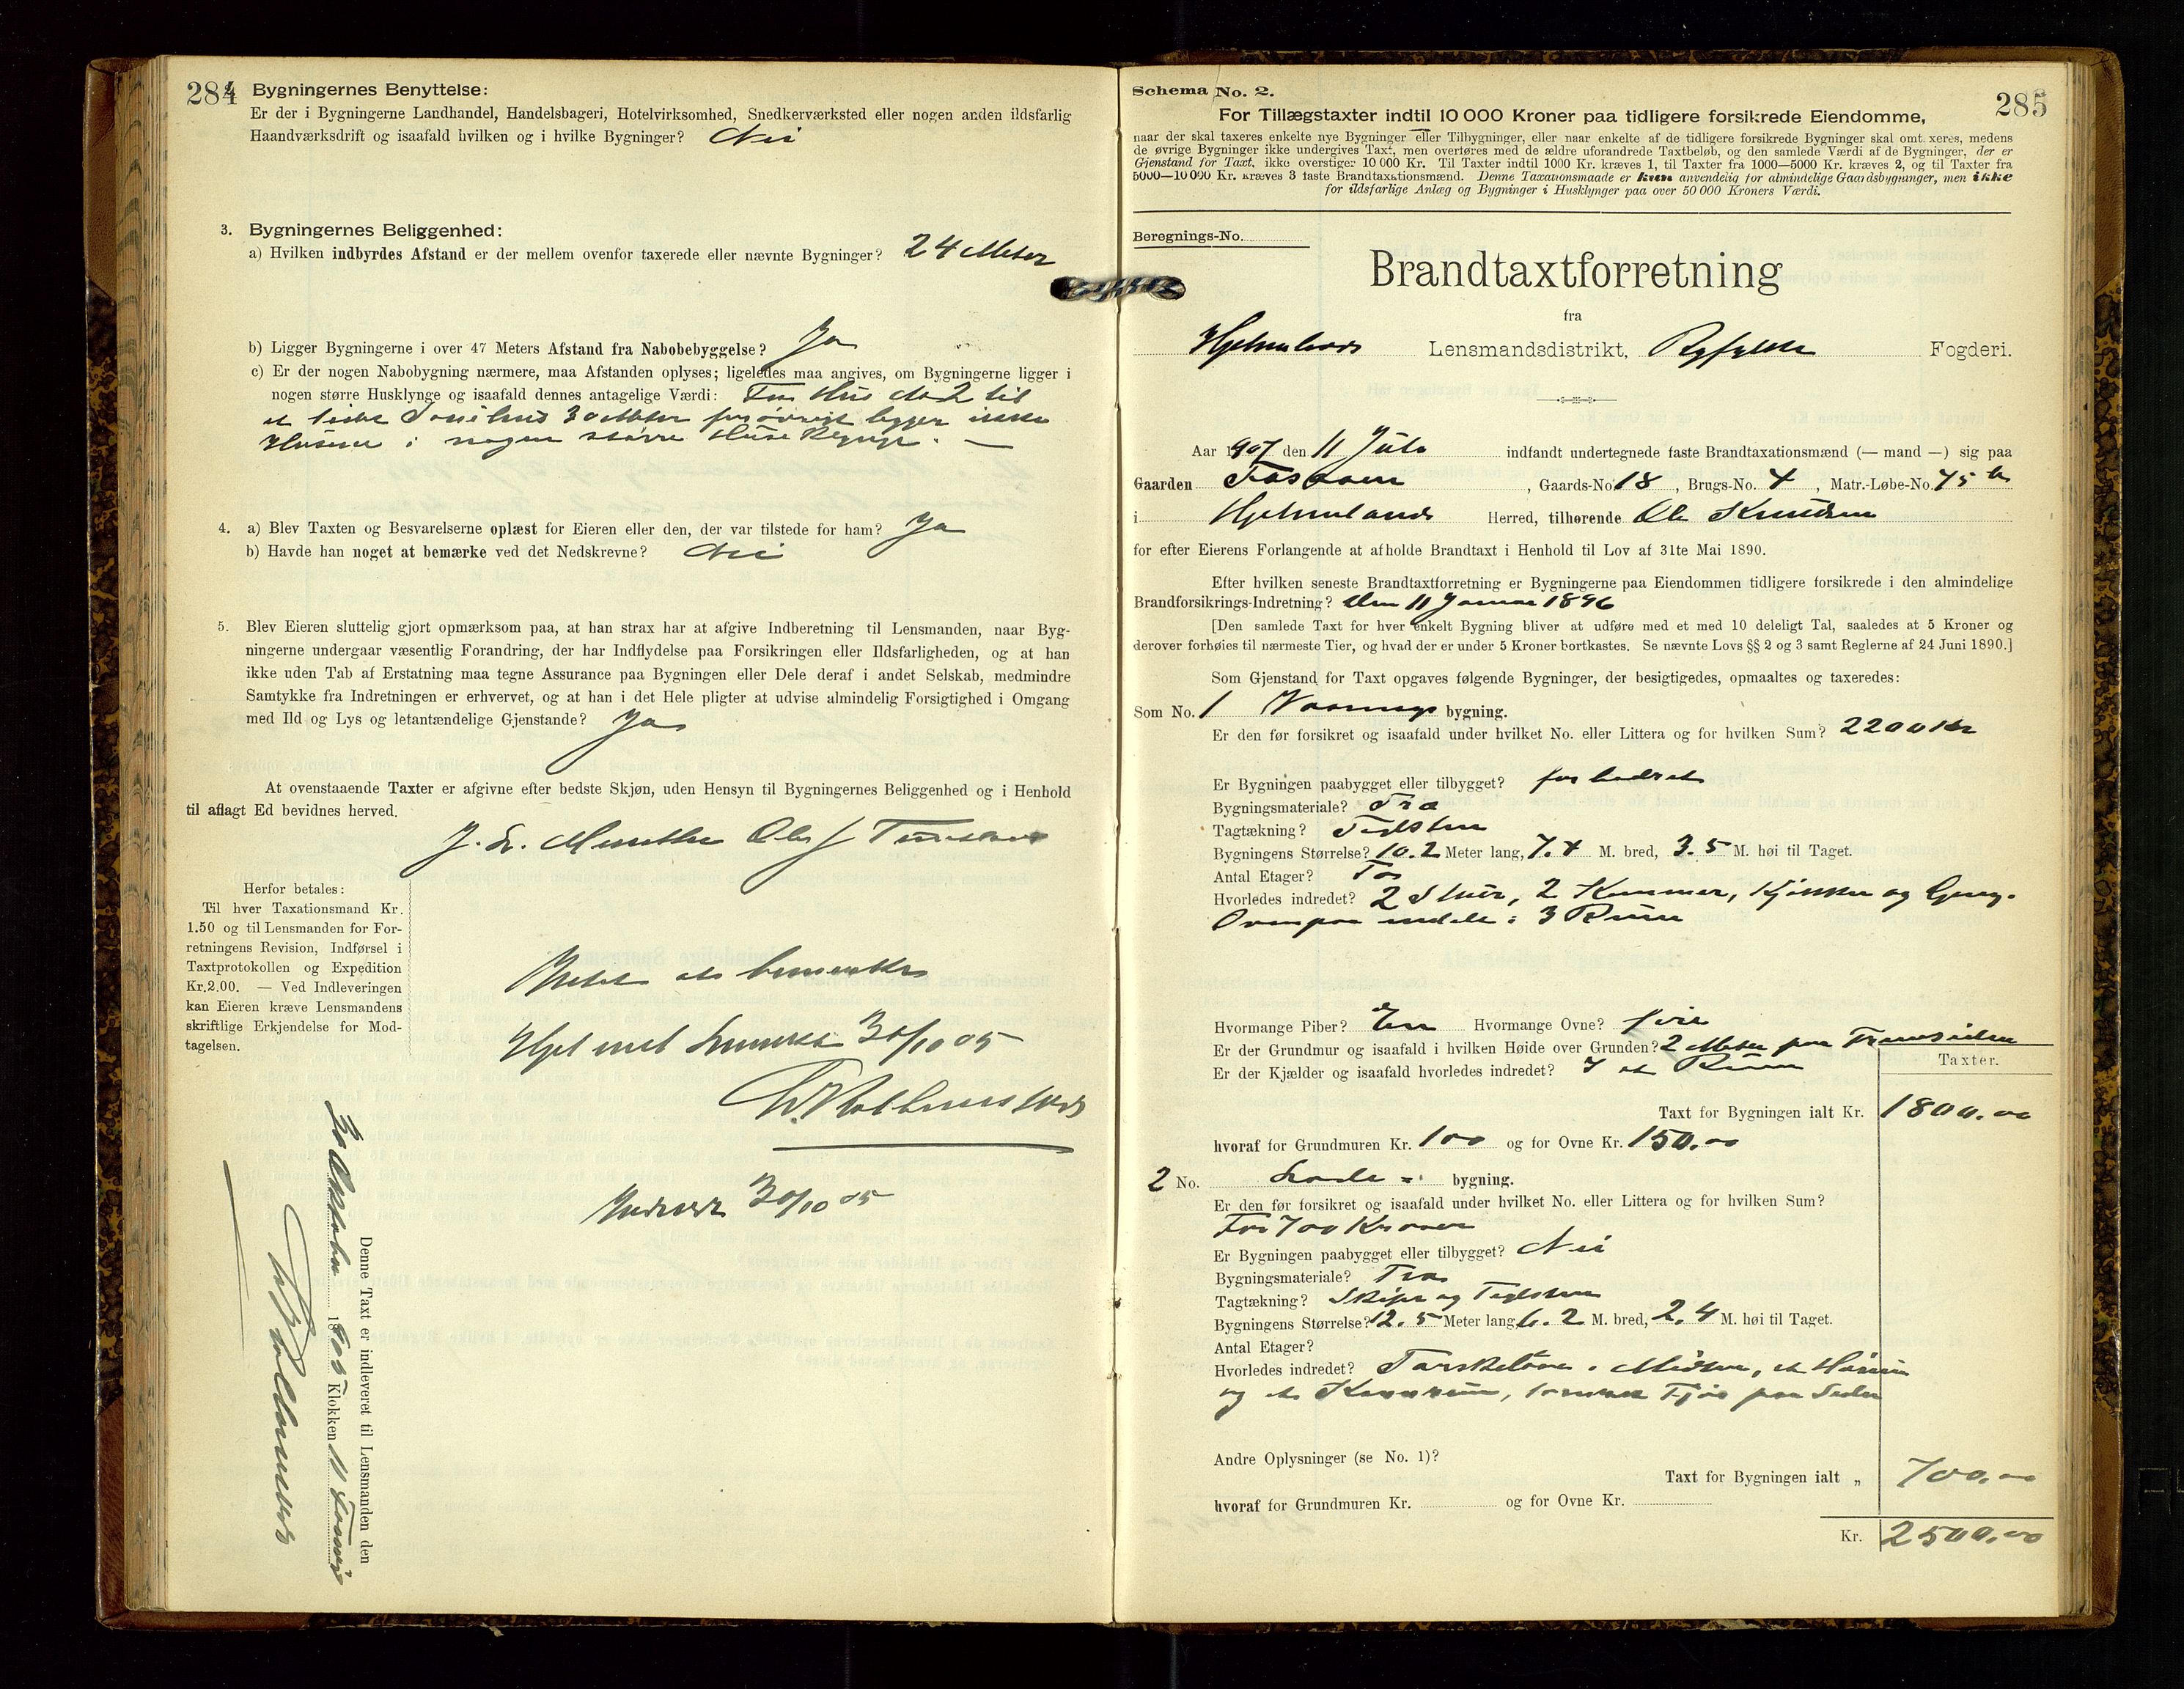 284
Bygningernes Benyttelse:
Er der i Bygningerne Landhandel, Handelsbageri, Hotelvirksomhed, Snedkerværksted eller nogen anden ildsfarlig
Haandværksdrift og isaafald hvilken og i hvilke Bygninger? Nei
3. Bygningernes Beliggenhed:
a) Hvilken indbyrdes Afstand er der mellem ovenfor taxerede eller nævnte Bygninger? 24 Meter
b) Ligger Bygningerne i over 47 Meters Afstand fra Nabobebyggelse? Ja
c) Er der nogen Nabobygning nærmere, maa Afstanden oplyses; ligeledes maa angives, om Bygningerne ligger i
nogen større Husklynge og isaafald dennes antagelige Værdi: Fra Hus No 2 til
et lidet 30 Meter forøvrigt ligger ikke
Husene i nogen større
4. a) Blev Taxten og Besvarelserne oplæst for Eieren eller den, der var tilstede for ham? Ja
b) Havde han noget at bemærke ved det Nedskrevne? Nei
5. Blev Eieren sluttelig gjort opmærksom paa, at han strax har at afgive Indberetning til Lensmanden, naar Byg-
ningerne undergaar væsentlig Forandring, der har Indflydelse paa Forsikringen eller Ildsfarligheden, og at han
ikke uden Tab af Erstatning maa tegne Assurance paa Bygningen eller Dele deraf i andet Selskab, medmindre
Samtykke fra Indretningen er erhvervet, og at han i det Hele pligter at udvise almindelig Forsigtighed i Omgang
med Ild og Lys og letantændelige Gjenstande? Ja
At ovenstaaende Taxter er afgivne efter bedste Skjøn, uden Hensyn til Bygningernes Beliggenhed og i Henhold
til aflagt Ed bevidnes herved.
Herfor betales:
Til hver Taxationsmand Kr.
1.50 og til Lensmanden for For-
retningens Revision, Indførsel i
Taxtprotokollen og Expedition
Kr. 2.00. — Ved Indleveringen
kan Eieren kræve Lensmandens
skriftlige Erkjendelse for Mod-
tagelsen.
Intet at bemerke
30/10 05
30/10 05
Denne Taxt er indleveret til Lensmanden den
30 Oktober 1905 Klokken 11 Formid
285
Schema No. 2.
For Tillægstaxter indtil 10 000 Kroner paa tidligere forsikrede Eiendomme,
naar der skal taxeres enkelte nye Bygninger eller Tilbygninger, eller naar enkelte af de tidligere forsikrede Bygninger skal omtaxeres, medens
de øvrige Bygninger ikke undergives Taxt, men overføres med de ældre uforandrede Taxtbeløb, og den samlede Værdi af de Bygninger, der er
Gjenstand for Taxt, ikke overstiger 10 000 Kr. Til Taxter indtil 1000 Kr. kræves 1, til Taxter fra 1000—5000 Kr. kræves 2, og til Taxter fra
5000—10 000 Kr. kræves 3 faste Brandtaxationsmænd. Denne Taxationsmaade er kun anvendelig for almindelige Gaardsbygninger, men ikke
for ildsfarlige Anlæg og Bygninger i Husklynger paa over 50 000 Kroners Værdi.
Beregnings-No.
Brandtaxtforretning
fra
Hjelmelands Lensmandsdistrikt, Ryfylke Fogderi.
Aar 1907 den 11 Juli indfandt undertegnede faste Brandtaxationsmænd (— mand —) sig paa
Gaarden , Gaards-No. 18, Brugs-No. 4, Matr.-Løbe-No. 75 b
i Hjelmelands Herred, tilhørende Ole Knudsen
for efter Eierens Forlangende at afholde Brandtaxt i Henhold til Lov af 31te Mai 1890.
Efter hvilken seneste Brandtaxtforretning er Bygningerne paa Eiendommen tidligere forsikrede i den almindelige
Brandforsikrings-Indretning? Den 11 Januar 1896
[Den samlede Taxt for hver enkelt Bygning bliver at udføre med et med 10 deleligt Tal, saaledes at 5 Kroner og
derover forhøies til nærmeste Tier, og hvad der er under 5 Kroner bortkastes. Se nævnte Lovs §§ 2 og 3 samt Reglerne af 24 Juni 1890.]
Som Gjenstand for Taxt opgaves følgende Bygninger, der besigtigedes, opmaaltes og taxeredes:
Som No. 1 Vaanings bygning.
Er den før forsikret og isaafald under hvilket No. eller Littera og for hvilken Sum? 2200 Kr
Er Bygningen paabygget eller tilbygget? forbedret
Bygningsmateriale? Træ
Tagtækning? Teglsten
Bygningens Størrelse? 10.2 Meter lang, 7.4 M. bred, 3.5 M. høi til Taget.
Antal Etager? To
Hvorledes indredet? 2 Stuer, 2 Kammer, Kjøkken og Gang.
Ovenpaa inddelt i 3 Rum
Hvormange Piber? En Hvormange Ovne? fire
Er der Grundmur og isaafald i hvilken Høide over Grunden? 2 Meter paa Framsiden
Er der Kjælder og isaafald hvorledes indredet? I et Rum
Taxter.
Taxt for Bygningen ialt Kr. 1800.00
hvoraf for Grundmuren Kr. 100 og for Ovne Kr. 150.00
2 No. Lade bygning.
Er den før forsikret og isaafald under hvilket No. eller Littera og for hvilken Sum?
For 700 Kroner
Er Bygningen paabygget eller tilbygget? Nei
Bygningsmateriale? Træ
Tagtækning? Skifer og Teglsten
Bygningens Størrelse? 12.5 Meter lang, 6.2 M. bred, 2.4 M. høi til Taget.
Antal Etager?
Hvorledes indredet? Tærskelove i Midten, et Hørum
og et Kornrum, samt Fjøs paa Siden
Andre Oplysninger (se No. 1)?
Taxt for Bygningen ialt „ 700.00
hvoraf for Grundmuren Kr. og for Ovne Kr.
Kr. 2500.00